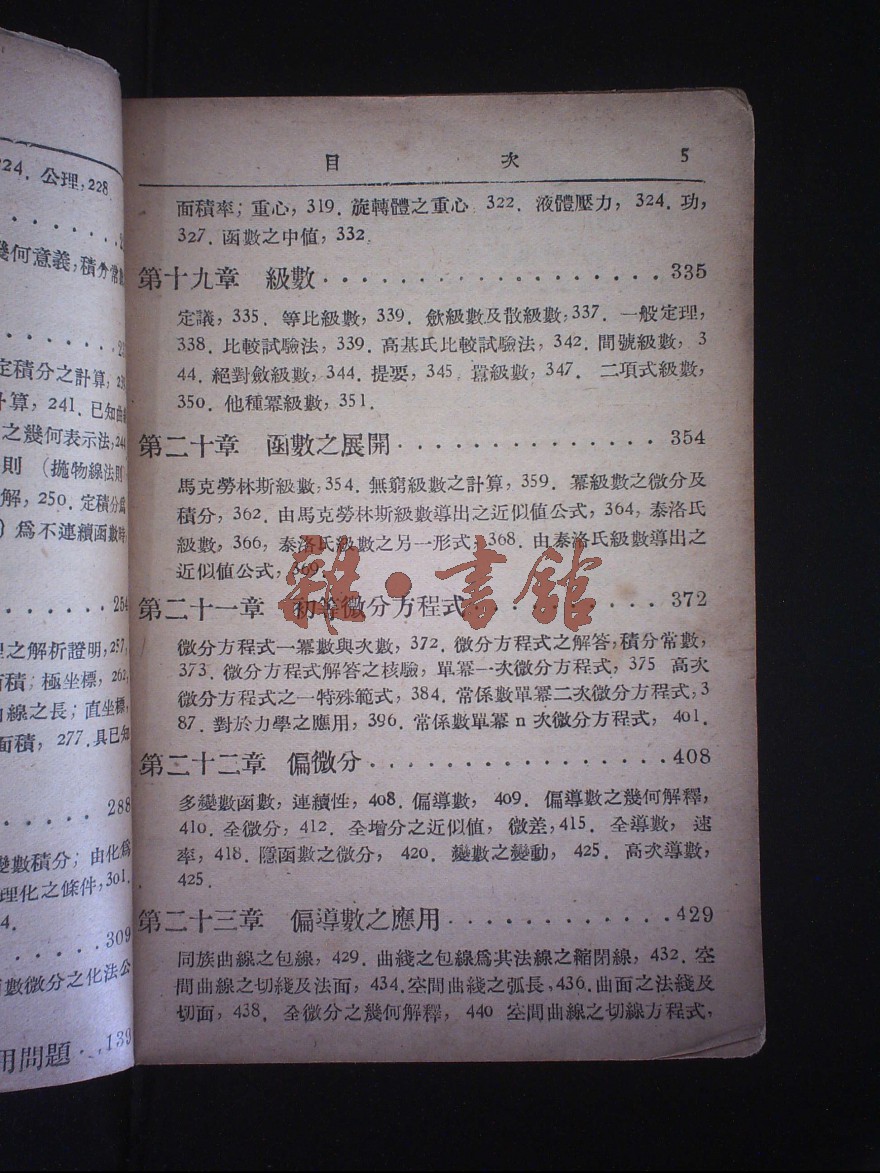 224. 公理,228
幾何意義,積分常數
定積分之計算,239
計算,241.已知曲線
之幾何表示法,244
則(拋物線法則
解,250.定積分爲
)爲不連續函數時,
254
理之解析證明,257,
面積;極坐標,262,
曲線之長;直坐標,
面積,277.具已知
288
變數積分;由化爲
理化之條件,301.
4.
309
數微分之化法公
用問題 139
目 次 5
面積率;重心,319.旋轉體之重心 322. 液體壓力,324.功,
327.函數之中值,332.
第十九章 級數··················335
定議,335.等比級數,339.斂級數及散級數,337. 一般定理,
338.比較試驗法,339.高基氏比較試驗法,342.間號級數,3
44.絕對斂級數,344.提要,345.羃級數,347. 二項式級數,
350.他種羃級數,351.
第二十章 函數之展開··············354
馬克勞林斯級數,354.無窮級數之計算,359.羃級數之微分及
積分,362.由馬克勞林斯級數導出之近似值公式,364,泰洛氏
級數,366,泰洛氏級數之另一形式,368.由泰洛氏級數導出之
近似值公式,369
第二十一章 初等微分方程式···········372
微分方程式一羃數與次數,372.微分方程式之解答,積分常數,
373.微分方程式解答之核驗,單羃一次微分方程式,375 高次
微分方程式之一特殊範式,384.常係數單羃二次微分方程式,3
87.對於力學之應用,396.常係數單羃n次微分方程式, 401.
第二十二章 偏微分···············408
多變數函數,連續性,408.偏導數, 409. 偏導數之幾何解釋,
410.全微分,412. 全增分之近似值, 微差,415. 全導數, 速
率,418.隱函數之微分, 420. 變數之變動, 425. 高次導數,
425.
第二十三章 偏導數之應用············429
同族曲線之包線,429.曲綫之包線爲其法線之縮閉線,432.空
間曲線之切綫及法面,434.空間曲綫之弧長,436.曲面之法綫及
切面,438. 全微分之幾何解釋, 440 空間曲線之切線方程式,
雜·書館